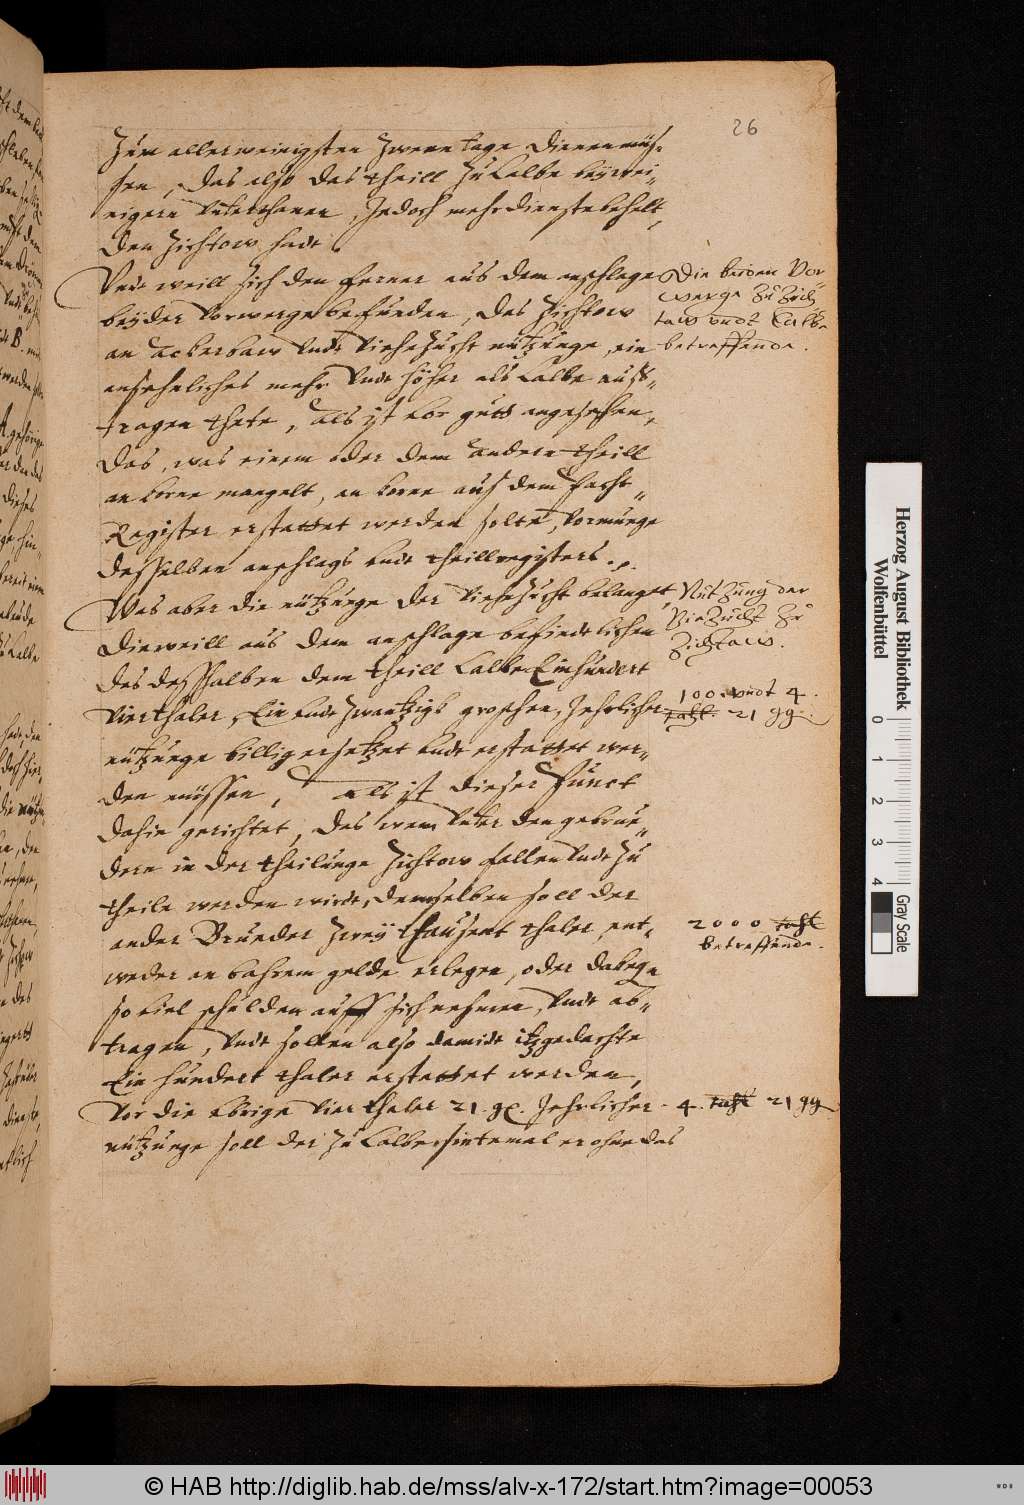 26
Zum allerweinigsten zween tage dienen müs-
sen, Das also das theill zu Calbe bey wei-
nigern Unterthanen, Jedoch mehr dienste behelt,
den Zichtow hadt.
Undt weill sich den ferner aus dem anschlage
beyder Vorwerge befunden, das Zichtow
an Ackerbaw undt Viehezucht nützunge, ein
ansehnliches mehr undt höher als Calbe auß-
tragen thete, Als ist vor gutt angesehen,
Das, was einem oder dem andern theill
an korne mangelt, an korne aus dem Pacht
Register erstattet werden solte, vermüge
desselben anschlags undt theillregisters.
Die beiden Vor
werge zu Zich
taw undt Calbe
betreffende.
Was aber die nützunge der Viehezucht belanget,
Dieweill aus dem anschlage befindtlichen
das desshalben dem theill Calbe Einhundert
Vier thaler, Ein undt zwantzigk groschen, Jehrlicher
nützunge billig ersetzet undt erstattet wer-
den müssen, Als ist dieser Punct
dahin gerichtet, Das wem unter den gebrue-
dern in der theilunge Zichtow fallen undt zu
theile werden wirdt, demselben soll der
ander Bruder zwey thausent thaler, ent-
weder an bahrem gelde erlegen, oder dakegen
so viel schulden auff sich nehmen, undt ab-
tragen, undt sollen also damidt itzgedachte
Ein hundert thaler erstattet werden,
Vor die ubrige Vier thaler 21. gl. Jehrlicher
nützunge soll der zu Calbe, sintemal er ohne das
Nutzung der
Viezucht zu
Zichtaw.
100. undt 4.
tahl. 21 gg.
2000 tahl
betreffende.
4. tahl 21 gg
Herzog August Bibliothek
Wolfenbüttel
0 1 2 3 4
Gray Scale
© HAB http://diglib.hab.de/mss/alv-x-172/start.htm?image=00053